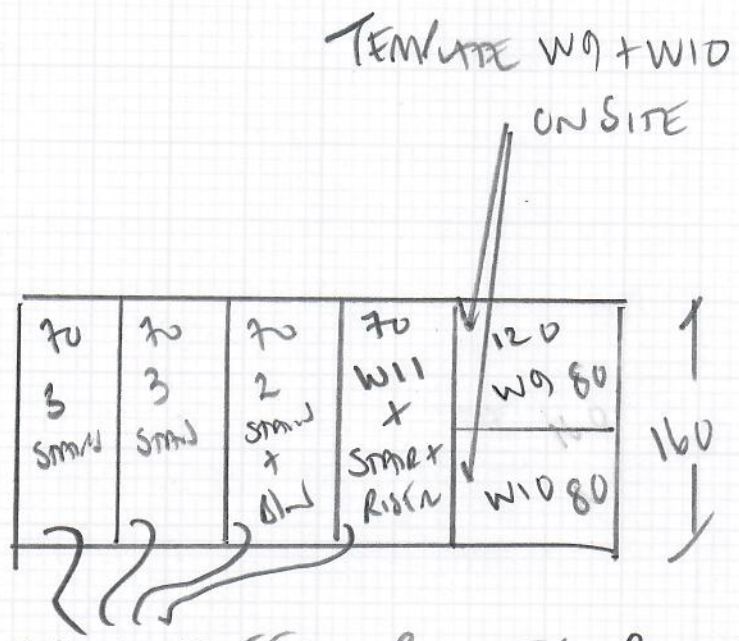 TEMPLATE W9 + W10
ON SITE
70
3
STAIRS
70
3
STAIRS
70
2
STAIRS
+
70
W11
+
STAIR +
RISER
120
W9 80
W10 80
160